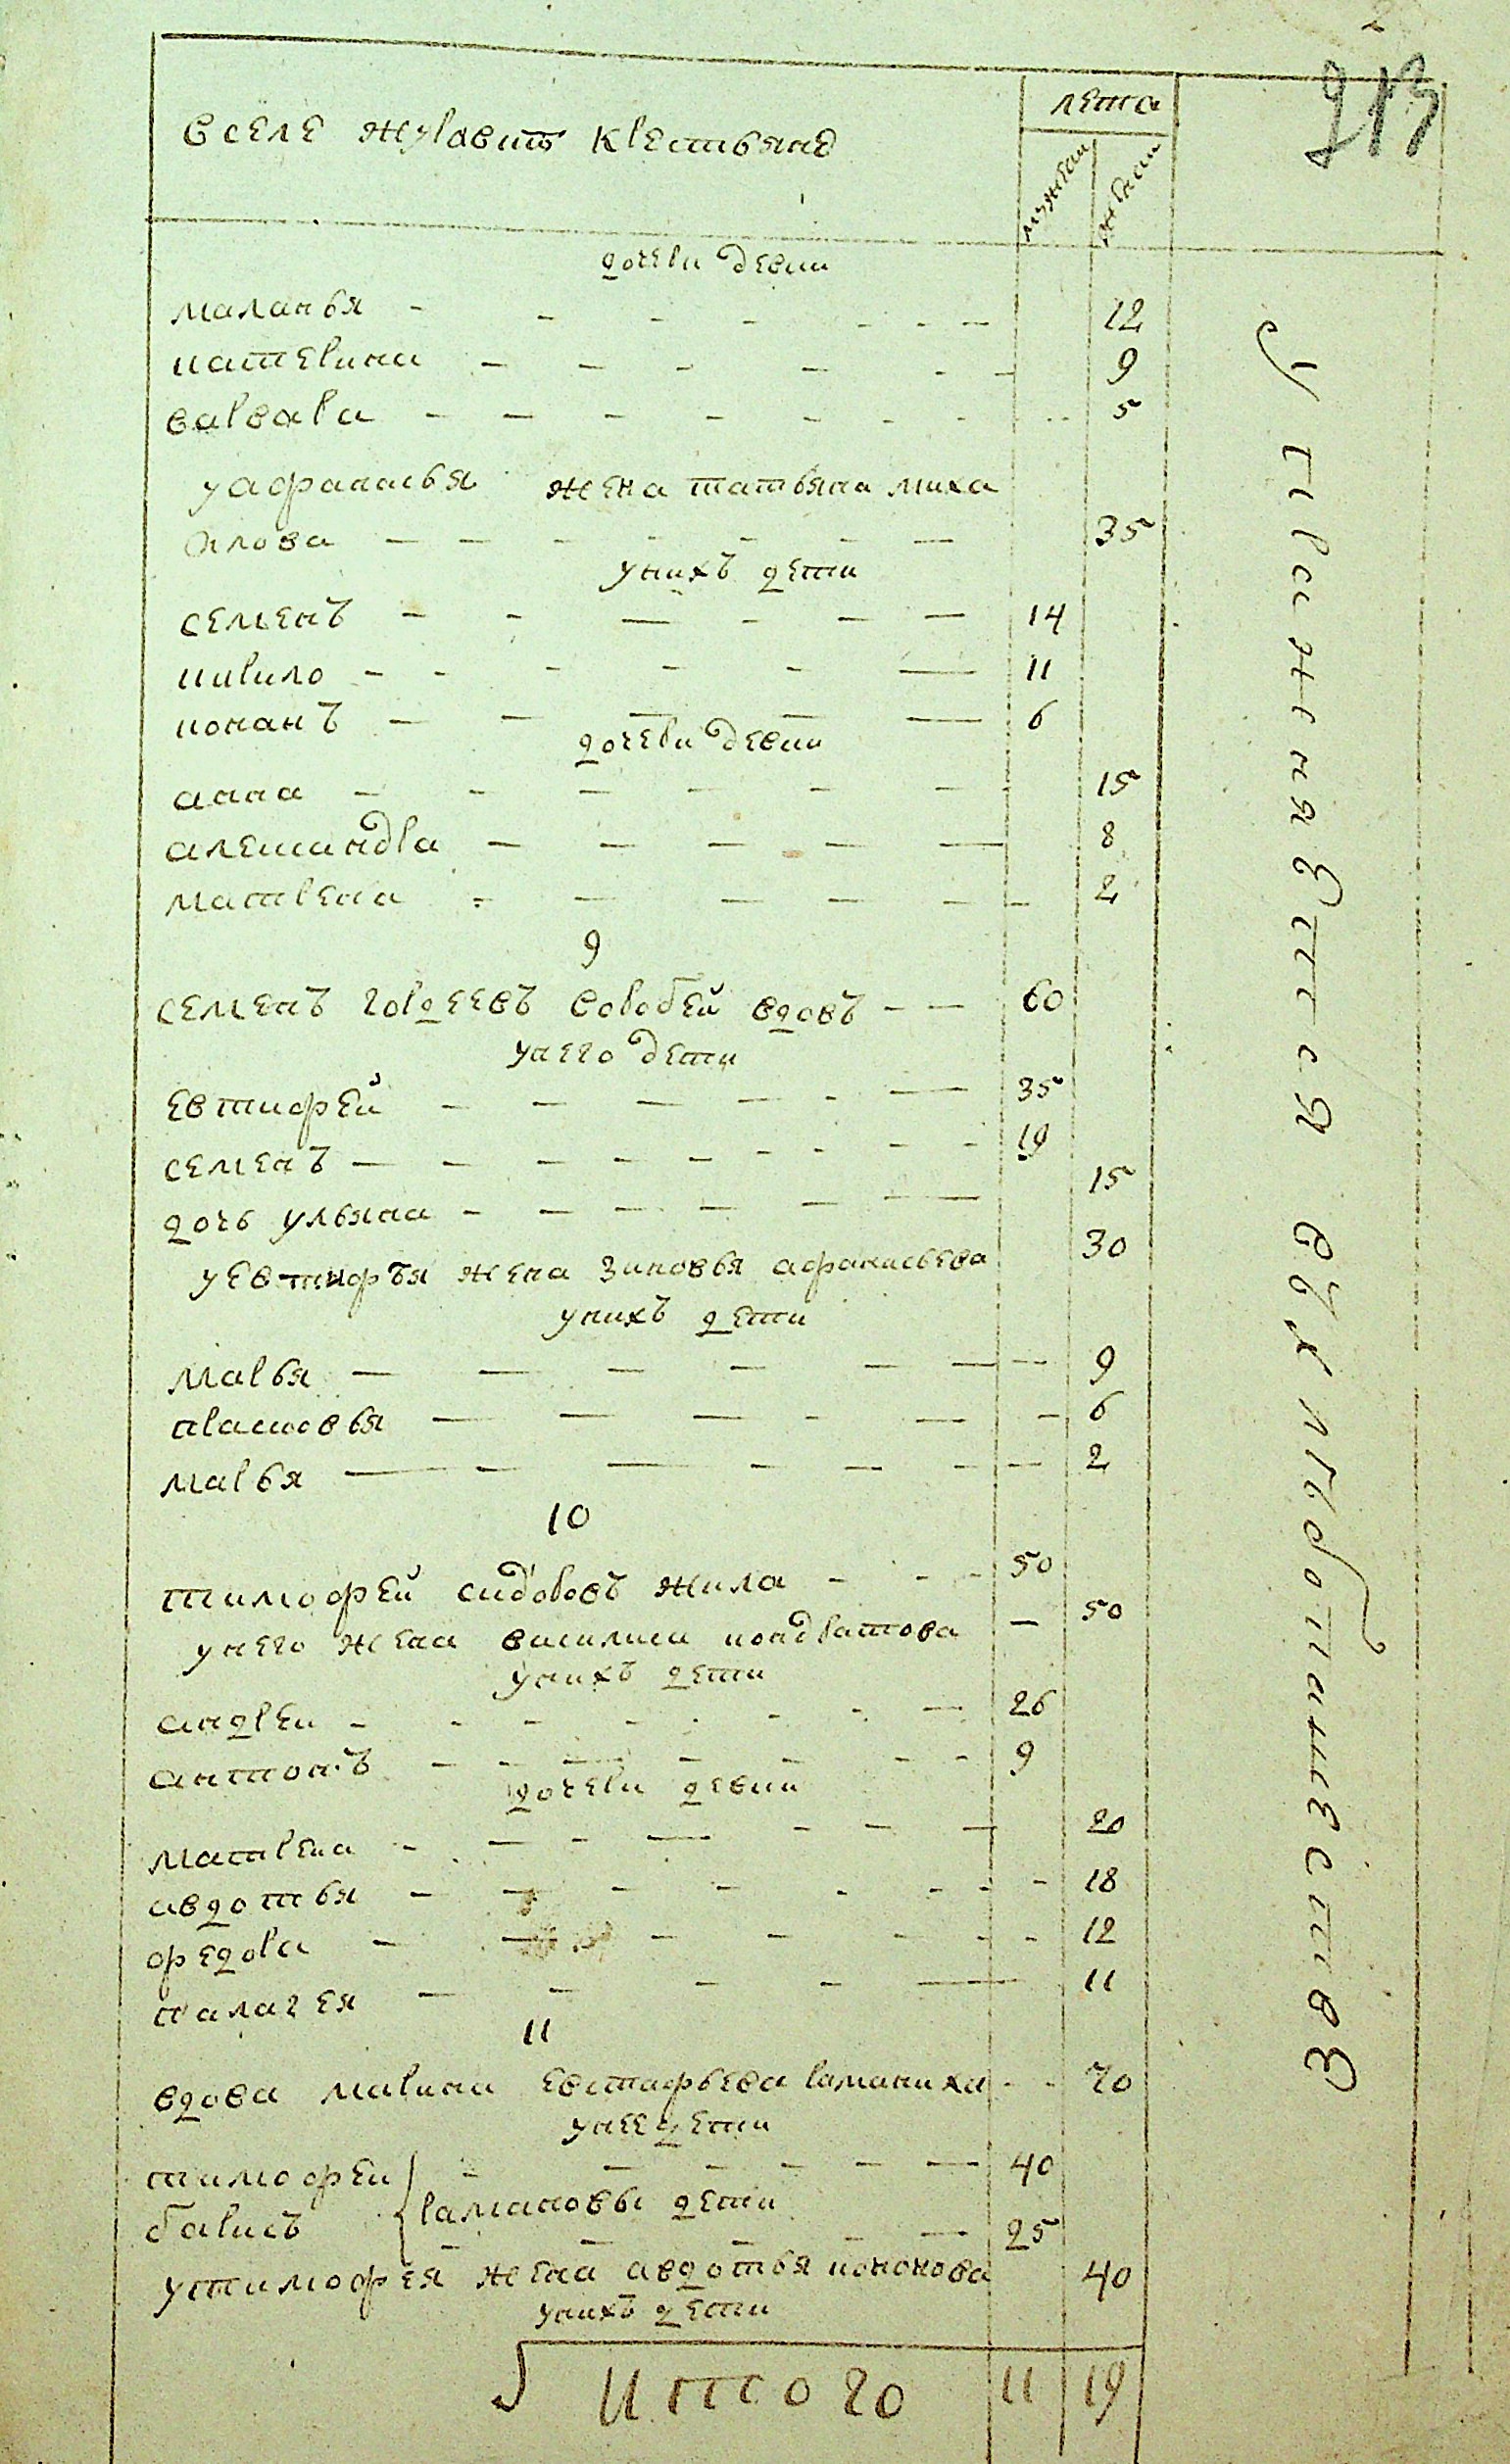 213
лета
вселе журавит крестьяне
мужеска
женска
дочери девки
маланья 12
катерина 9
варвара 5
уафанасья жена татьяна миха
илова 35
унихъ дети
семенъ 14
кирило 11
конанъ 6
дочери девки
анна 15
александра 8
матрена 2
9
семенъ гордеевъ воробей вдовъ 60
унего дети
евтифей 35
семенъ 19
дочь ульяна 15
уевтифъя жена зиновья афанасьева 30
унихъ дети
марья 9
прасковья 6
марья 2
10
тимофей сидоровъ жила 50
унего жена василиса кондратова 50
унихъ дети
андреи 26
антонъ 9
дочери девки
матрена 20
авдотья 18
федора 12
палагея 11
11
вдова марина евстафьева раманиха 70
унее дети
тимофеи 40
рамановы дети
барисъ 25
утимофея жена авдотья кононова 40
унихъ дети
итого 11 19